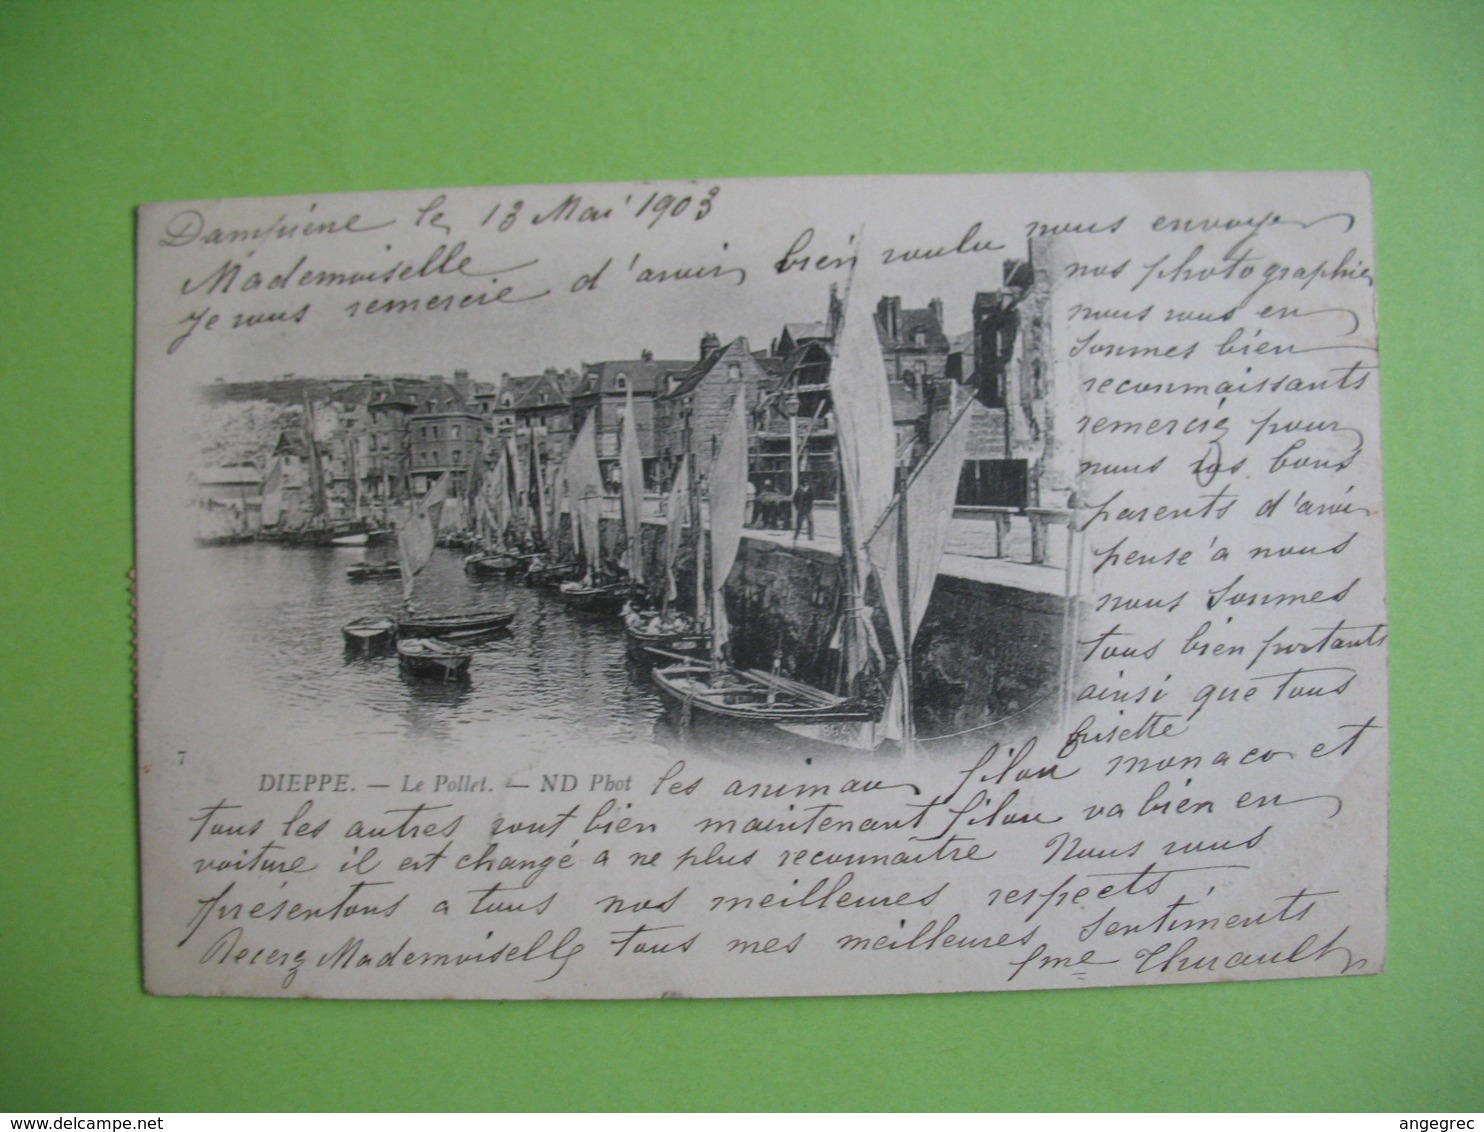 Dampiene le 13 Mai 1903
Mademoiselle
Je vous remercie d'avoir bien voulu nous envoyer
nos photographie
nous vous en
sommes bien
reconnaissants
remerciez pour
nous vos bons
parents d'avoir
pensé à nous
nous sommes
tous bien portants
ainsi que tous
les animau filou monaco et
frisette
tous les autres vont bien maintenant filou va bien en
voiture il est changé a ne plus reconnaître Nous vous
présentons a tous nos meilleures respects
Recerez Mademoiselle tous mes meilleures sentiments
fme Thuault
7
DIEPPE. — Le Pollet. — ND Phot
www.delcampe.net
angegrec